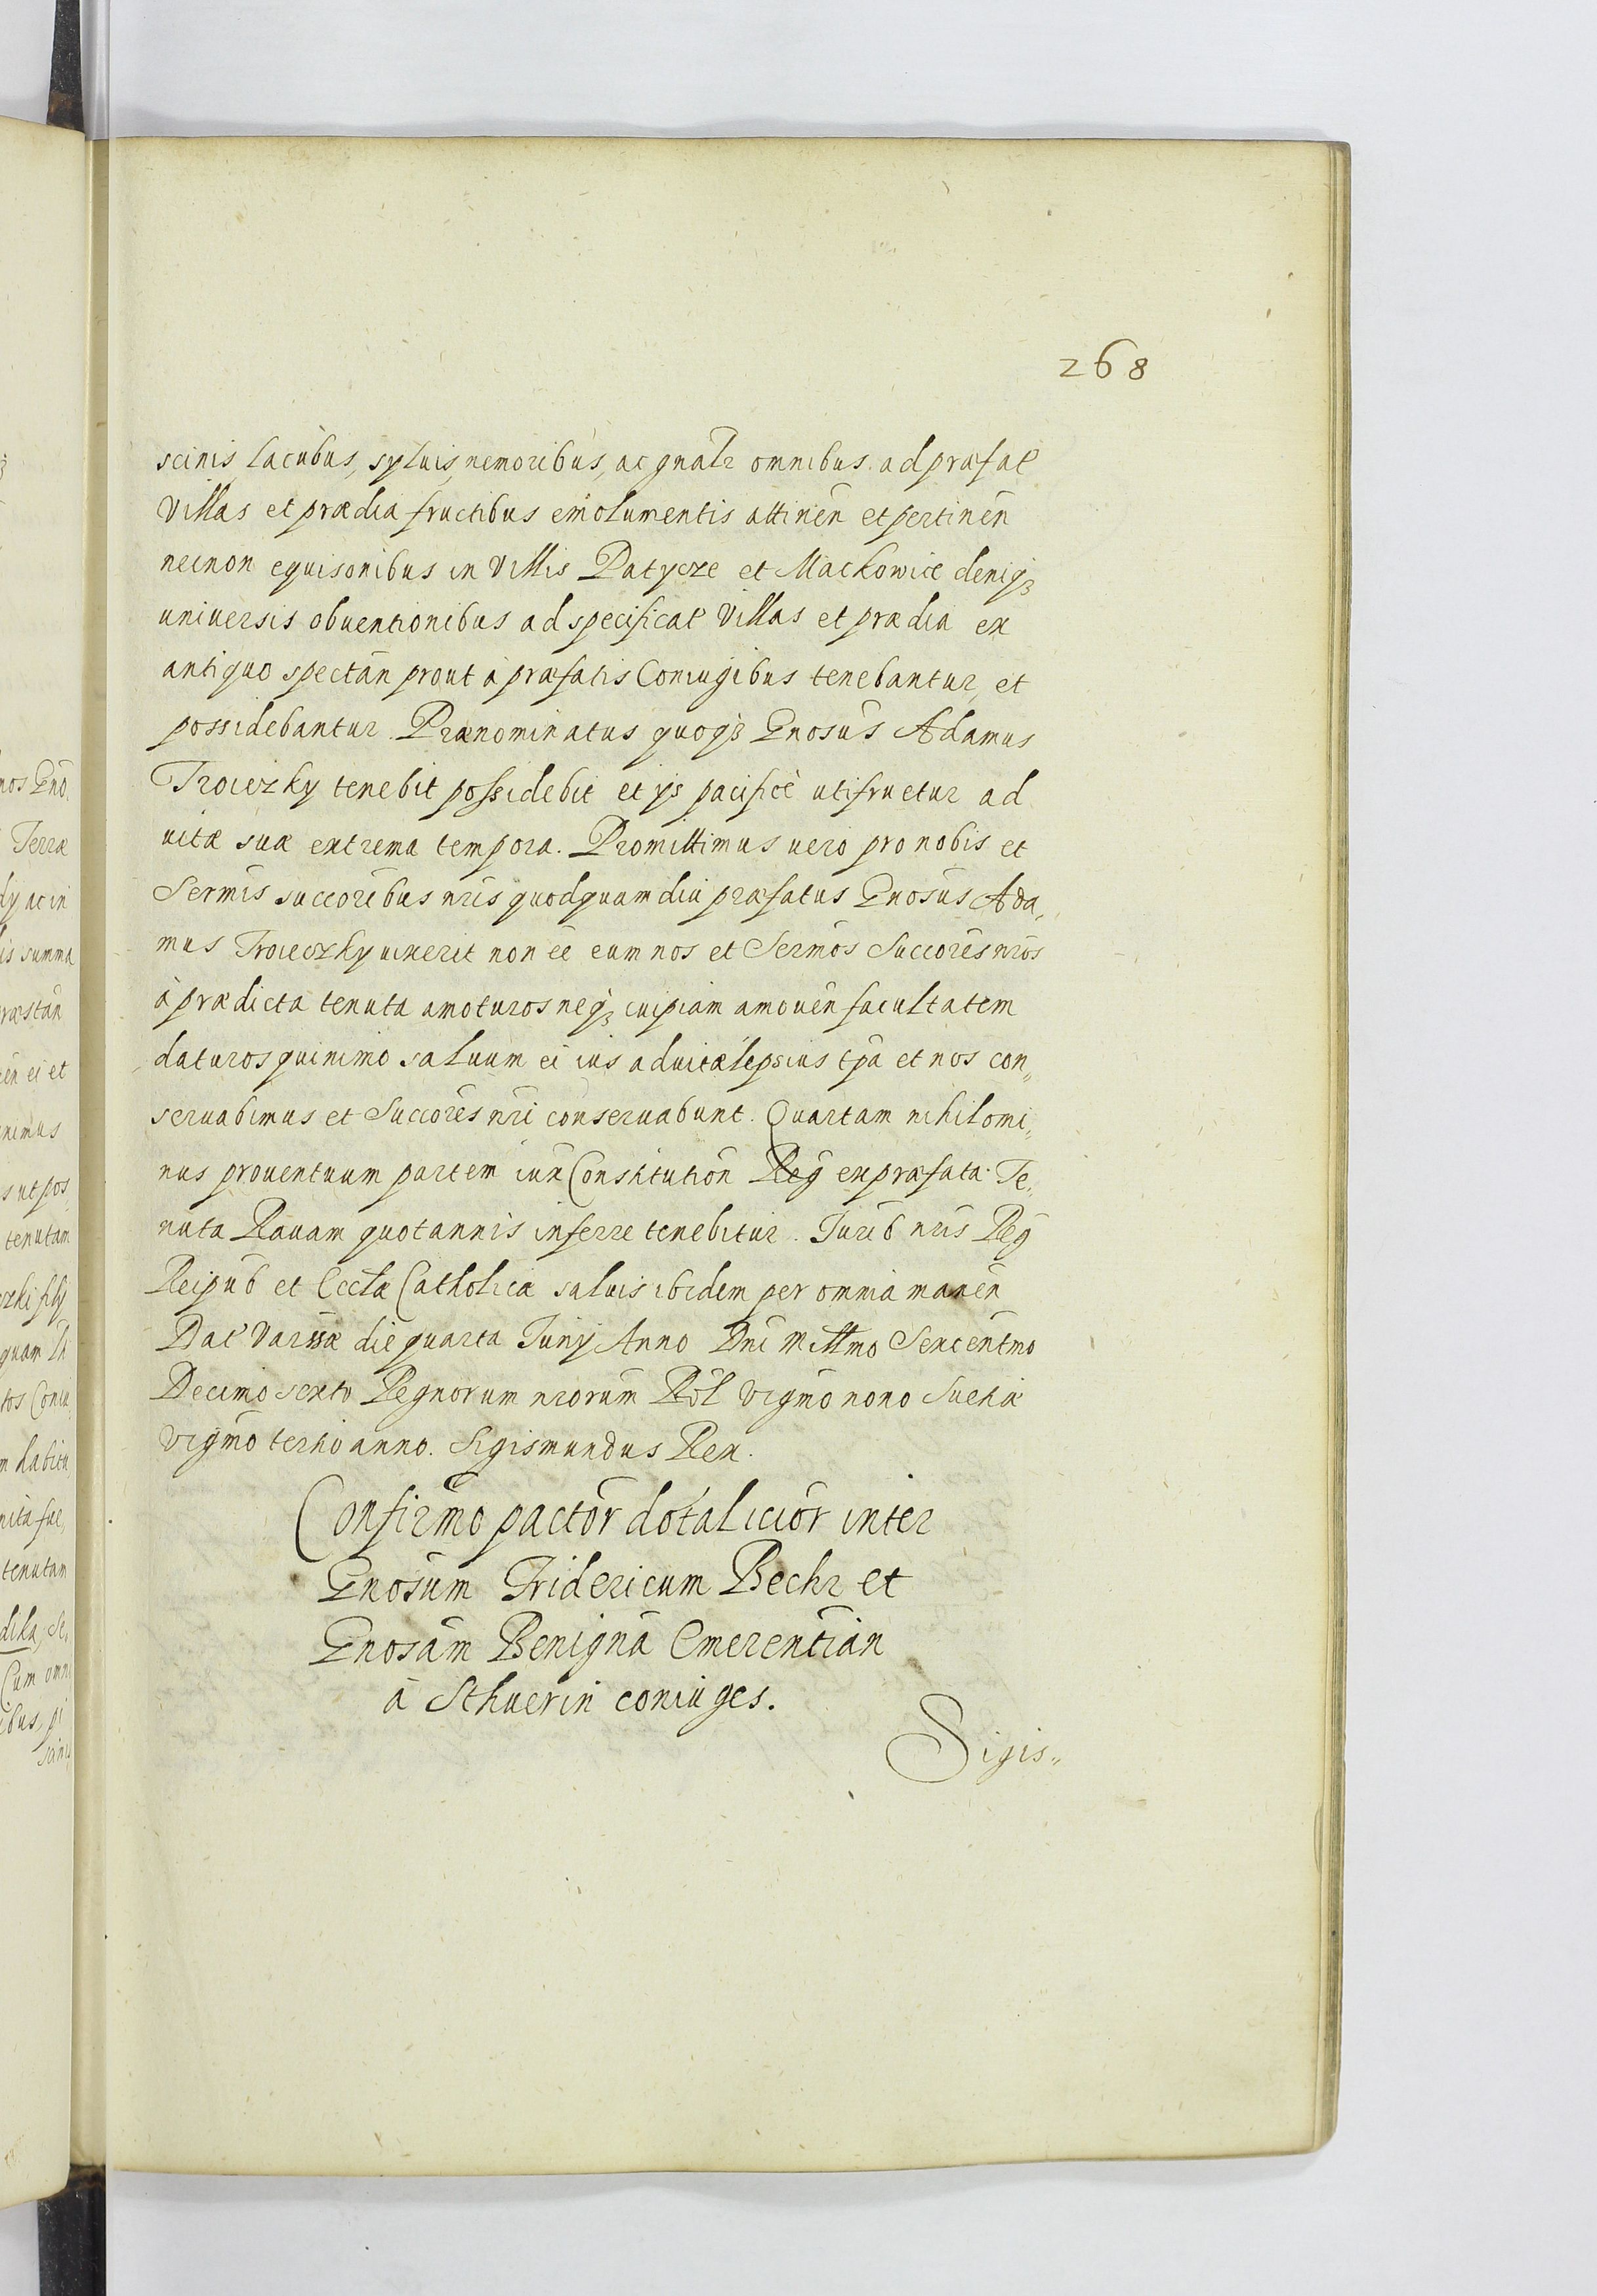 268
scinis lacubus, syluis, nemoribus, ac gnalr omnibus ad præfat
Villas et prædia fructibus emolumentis attinen̄ et pertinen̄
necnon equisonibus in Villis Patycze et Mackowice deniqꝫ
uniuersis obuentionibus ad specificat Villas et prædia ex
antiquo spectan̄ prout à præfatis Coniugibus tenebantur, et
possidebantur. Prænominatus quoqꝫ Gnosus Adamus
Troieczky tenebit possidebit et ijs pacificè utifruetur ad
uitæ suæ extrema tempora. Promittimus uero pro nobis et
Sermis succoribus nris quod quamdiu præfatus Gnosus Ada„
mus Troieczky uixerit non ēe eum nos et Sermos Succores nros
à prædicta tenuta amoturos neqꝫ cuipiam amouen̄ facultatem
daturos quinimo saluum ei ius ad uitæ ipsius tpa et nos con„
seruabimus et Succores nri conseruabunt. Quartam nihilomi„
nus prouentuum partem iux Constitution̄ Reg ex præfata Te„
nuta Rauam quotannis inferre tenebitur. Jurib nris Reg
Reipub et Eccłæ Catholicæ saluis ibidem per omnia manen̄
Dat Varssæ die quarta Junij Anno Dni Millmo Sexcentmo
Decimo sexto Regnorum nrorum Pol vigmo nono Sueciæ
vigmo tertio anno. Sigismundus Rex.
Confirmo pactor dotalicior inter
Gnosum Fridericum Bechr et
Gnosam Benignā Emerentian
à Schuerin coniuges.
Sigis„